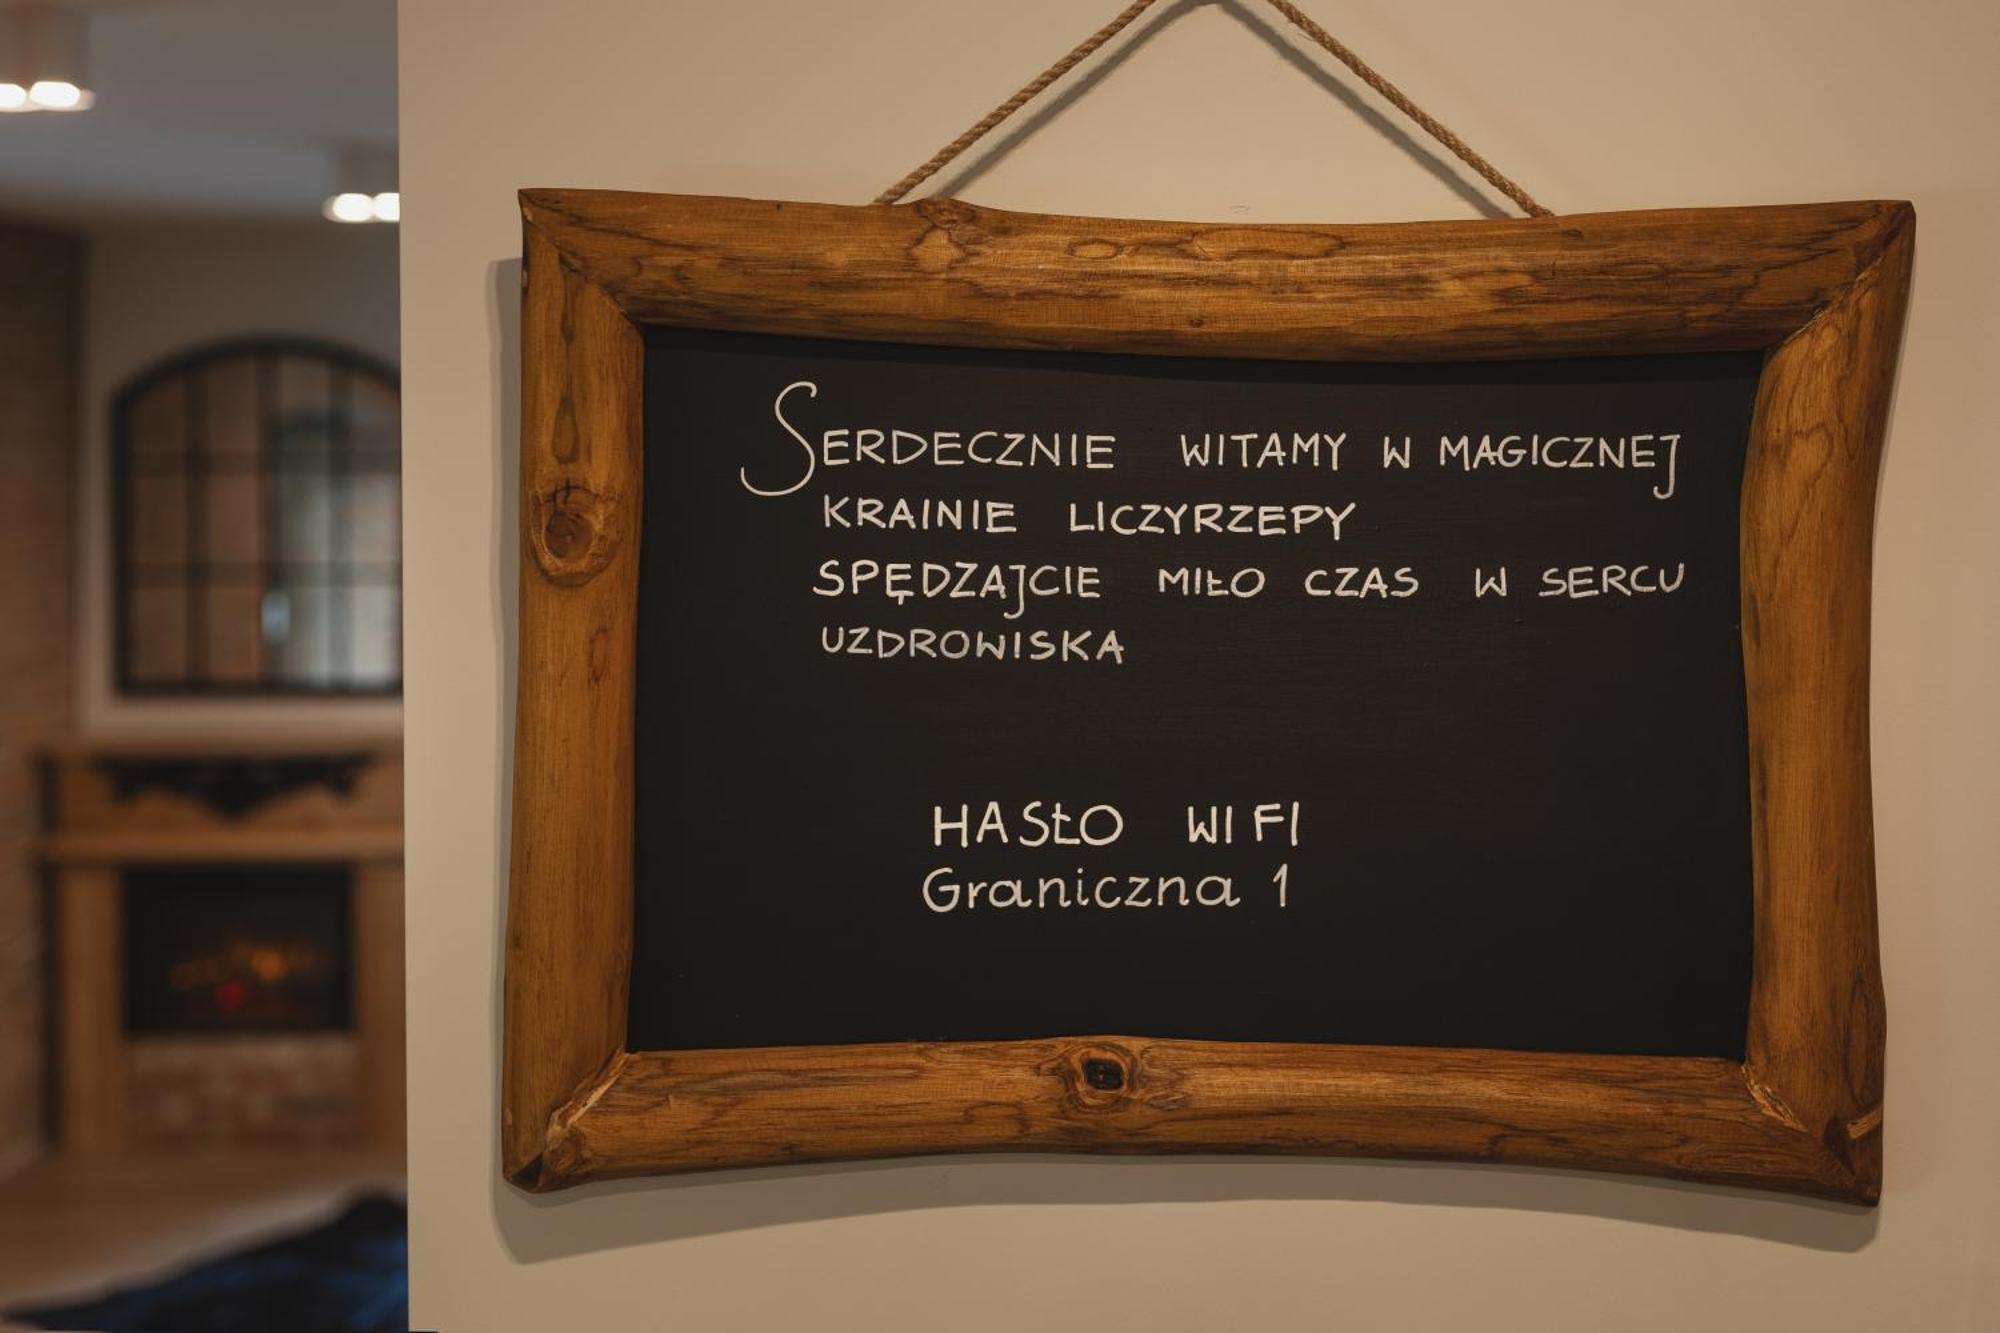 SERDECZNIE WITAMY W MAGICZNEJ
KRAINIE LICZYRZEPY
SPĘDZAJCIE MIŁO CZAS W SERCU
UZDROWISKA
HASŁO WIFI
Graniczna 1